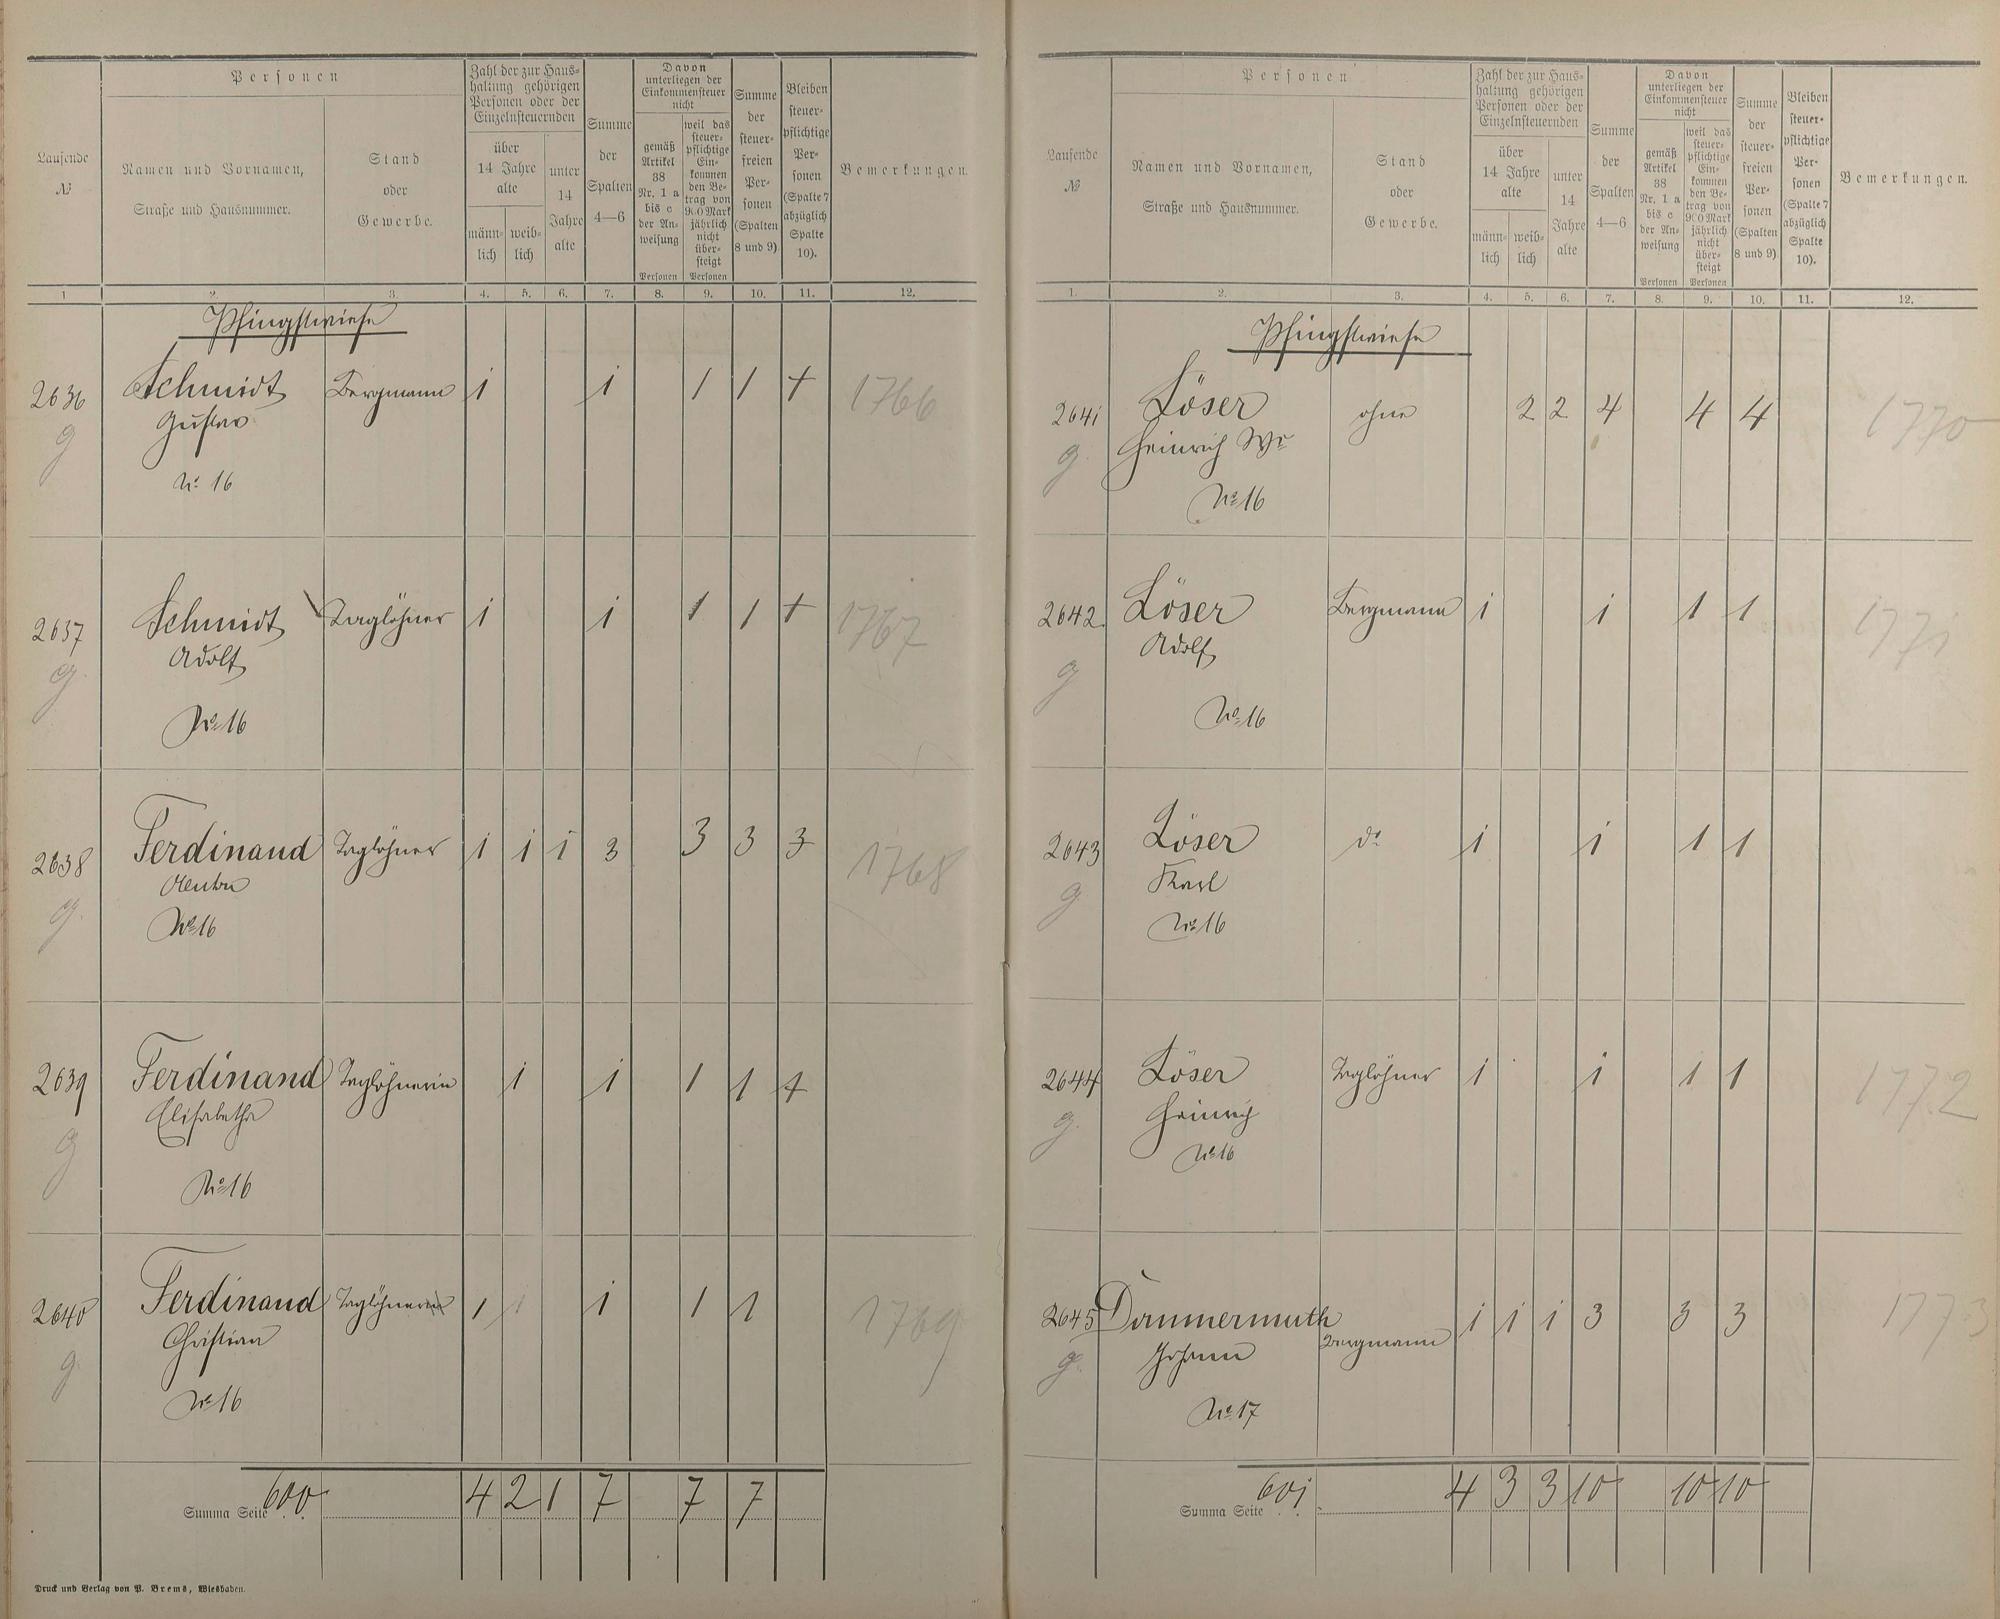 Laufende
№
Personen
Namen und Vornamen,
Straße und Hausnummer.
Stand
oder
Gewerbe.
Zahl der zur Haus-
haltung gehörigen
Personen oder der
Einzelnsteuernden
über
14 Jahre
alte
männ-
lich
weib-
lich
unter
14
Jahre
alte
Summe
der
Spalten
4—6
Davon
unterliegen der
Einkommensteuer
nicht
gemäß
Artikel
38
Nr. 1 a
bis c
der An-
weisung
Personen
weil das
steuer-
pflichtige
Ein-
kommen
den Be-
trag von
900 Mark
jährlich
nicht
über-
steigt
Personen
Summe
der
steuer-
freien
Per-
sonen
(Spalten
8 und 9)
Bleiben
steuer-
pflichtige
Per-
sonen
(Spalte 7
abzüglich
Spalte
10).
Bemerkungen.
1 2. 3. 4. 5. 6. 7. 8. 9. 10. 11. 12.
Pfingstwiese
2636 Schmidt Bergmann 1 1 1 1 1 1766
g Gustav
No 16
2637 Schmidt Taglöhner 1 1 1 1 1 1767
g. Adolf
No 16
2638 Ferdinand Taglöhner 1 1 1 3 3 3 3 1768
g. Anton
No 16
2639 Ferdinand Taglöhnerin 1 1 1 1 1
g Elisabetha
No 16
2640 Ferdinand Taglöhnerin 1 1 1 1 1 1769
g. Christian
No 16
Summa Seite 600 4 2 1 7 7 7
Druck und Verlag von P. Brems, Wiesbaden.
Laufende
№
Personen
Namen und Vornamen,
Straße und Hausnummer.
Stand
oder
Gewerbe.
Zahl der zur Haus-
haltung gehörigen
Personen oder der
Einzelnsteuernden
über
14 Jahre
alte
männ-
lich
weib-
lich
unter
14
Jahre
alte
Summe
der
Spalten
4—6
Davon
unterliegen der
Einkommensteuer
nicht
gemäß
Artikel
38
Nr. 1 a
bis c
der An-
weisung
Personen
weil das
steuer-
pflichtige
Ein-
kommen
den Be-
trag von
900 Mark
jährlich
nicht
über-
steigt
Personen
Summe
der
steuer-
freien
Per-
sonen
(Spalten
8 und 9)
Bleiben
steuer-
pflichtige
Per-
sonen
(Spalte 7
abzüglich
Spalte
10).
Bemerkungen.
1. 2. 3. 4. 5. 6. 7. 8. 9. 10. 11. 12.
Pfingstwiese
2641 Löser ohne 2 2 4 4 4 1770
g. Heinrich We
No 16
2642. Löser Bergmann 1 1 1 1 1771
g Adolf
No 16
2643 Löser do 1 1 1 1
g Karl
No 16
2644 Löser Taglöhner 1 1 1 1 1772
g. Heinrich
No 16
2645 Dommermuth Bergmann 1 1 1 3 3 3 1773
g. Johann
No 17
Summa Seite 601 4 3 3 10 10 10